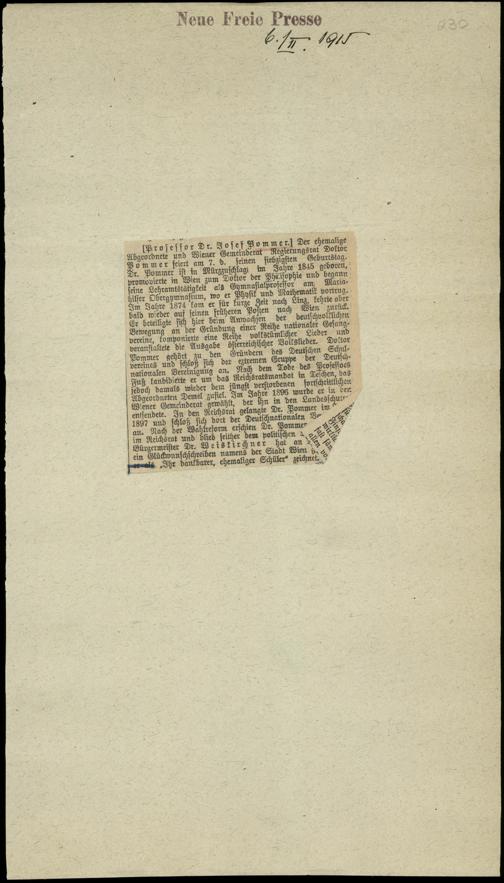 Neue Freie Presse
230
6./II. 1915
[Professor Dr. Josef Pommer.] Der ehemalige
Abgeordnete und Wiener Gemeinderat Regierungsrat Doktor
Pommer feiert am 7. d. seinen siebzigsten Geburtstag.
Dr. Pommer ist in Mürzzuschlag im Jahre 1845 geboren,
promovierte in Wien zum Doktor der Philosophie und begann
seine Lehramtstätigkeit als Gymnasialprofessor am Maria-
hilfer Obergymnasium, wo er Physik und Mathematik vortrug.
Im Jahre 1874 kam er für kurze Zeit nach Linz, kehrte aber
bald wieder auf seinen früheren Posten nach Wien zurück.
Er beteiligte sich hier beim Anwachsen der deutschvölkischen
Bewegung an der Gründung einer Reihe nationaler Gesang-
vereine, komponierte eine Reihe volkstümlicher Lieder und
veranstaltete die Ausgabe österreichischer Volkslieder. Doktor
Pommer gehört zu den Gründern des Deutschen Schul-
vereins und schloß sich der extremen Gruppe der Deutsch-
nationalen Vereinigung an. Nach dem Tode des Professors
Fuß kandidierte er um das Reichsratsmandat in Teschen, das
jedoch damals wieder dem jüngst verstorbenen fortschrittlichen
Abgeordneten Demel zufiel. Im Jahre 1896 wurde er in den
Wiener Gemeinderat gewählt, der ihn in den Landesschulrat
entsendete. In den Reichsrat gelangte Dr. Pommer im
1897 und schloß sich dort der Deutschnationalen
an. Nach der Wahlreform erschien Dr. Pommer
im Reichsrat und blieb seither dem politischen
Bürgermeister Dr. Weiskirchner hat an
ein Glückwunschschreiben namens der Stadt Wien
er als „Ihr dankbarer, ehemaliger Schüler“ zeichnet.